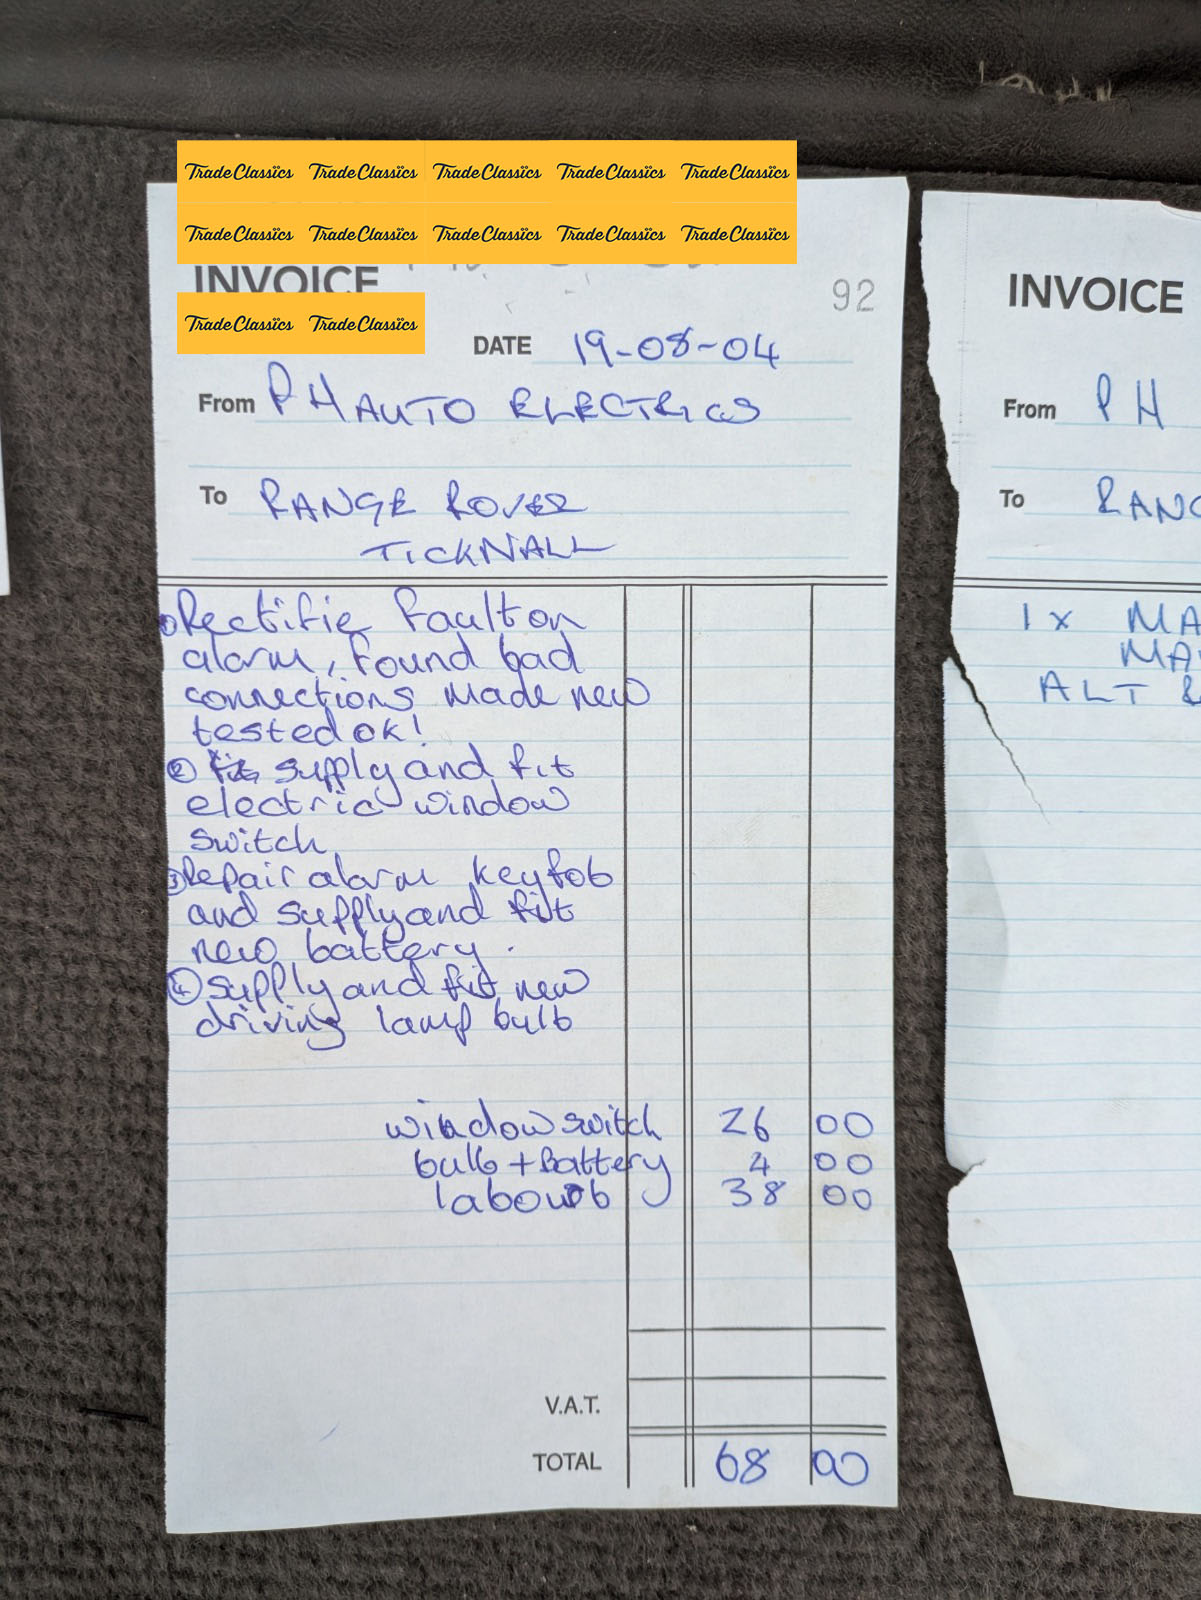 TradeClassics TradeClassics TradeClassics TradeClassics TradeClassics
TradeClassics TradeClassics TradeClassics TradeClassics TradeClassics
INVOICE
92
TradeClassics TradeClassics
DATE 19-08-04
From PH AUTO ELECTRICS
To RANGE ROVER
TICKNALL
① Rectifie fault on
alarm, found bad
connections made new
tested ok!
② supply and fit
electric window
switch
③ Repair alarm keyfob
and supply and fit
new battery.
④ supply and fit new
driving lamp bulb
window switch 26 00
bulb + Battery 4 00
labour 38 00
V.A.T.
TOTAL 68 00
INVOICE
From PH
To RANG
1 x MA
MA
ALT &